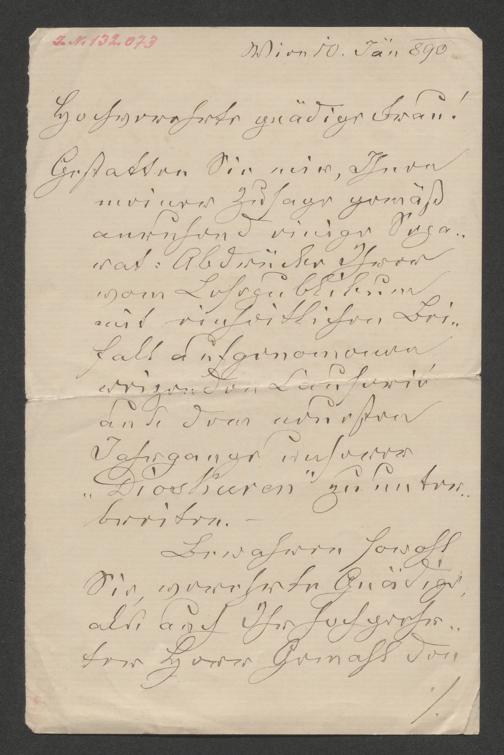 I.N. 132.073
Wien 10. Jän 890
Hochverehrte gnädige Frau!
Gestatten Sie mir, Ihnen
meiner Zusage gemäß
anruhend einige Sepa-
rat: Abdrücke Ihrer
vom Lesepublikum
mit einheitlichen Bei-
fall aufgenommenen
reizenden Causerie
aus dem neuesten
Jahrgange unserer
„Dioskuren" zu unter-
breiten. –
Bewahren sowohl
Sie, verehrte Gnädige,
als auch Ihr hochgeehr-
ter Herr Gemahl den
./.